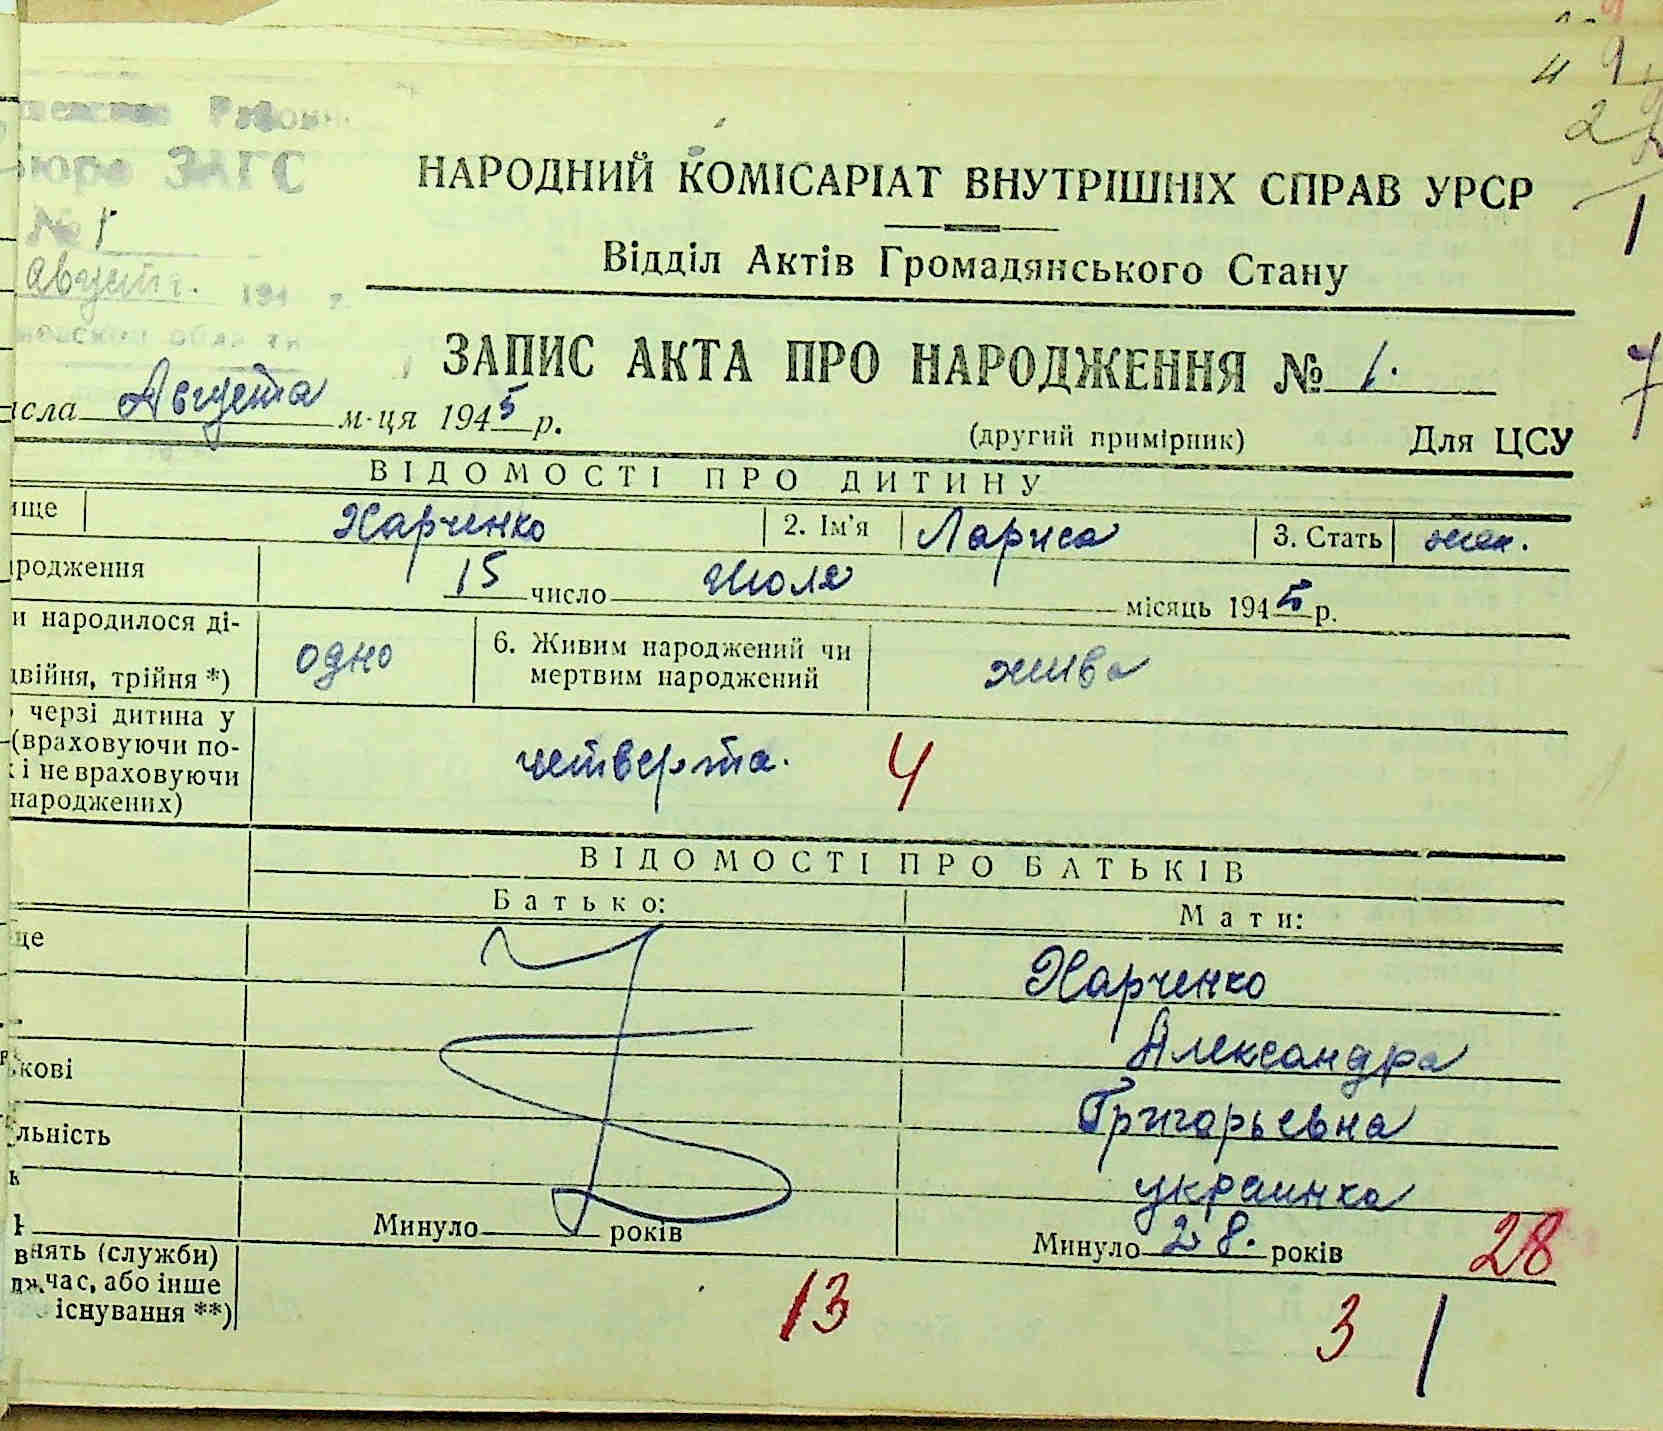 ЗАГС
№ 1
Август
НАРОДНИЙ КОМІСАРІАТ ВНУТРІШНІХ СПРАВ УРСР
Відділ Актів Громадянського Стану
ЗАПИС АКТА ПРО НАРОДЖЕННЯ № 1.
Августа м-ця 1945 р.
(другий примірник) Для ЦСУ
ВІДОМОСТІ ПРО ДИТИНУ
Харченко 2. Ім'я Лариса 3. Стать жен.
15 число Июля місяць 1945 р.
и народилося ді-
двійня, трійня *) одно 6. Живим народжений чи
мертвим народжений жива
черзі дитина у
(враховуючи по-
і не враховуючи
народжених) четверта. 4
ВІДОМОСТІ ПРО БАТЬКІВ
Батько: Мати:
Харченко
Александра
кові Григорьевна
льність украинка
Минуло років Минуло 28. років 28
нять (служби)
час, або інше
існування **) 13 3 1